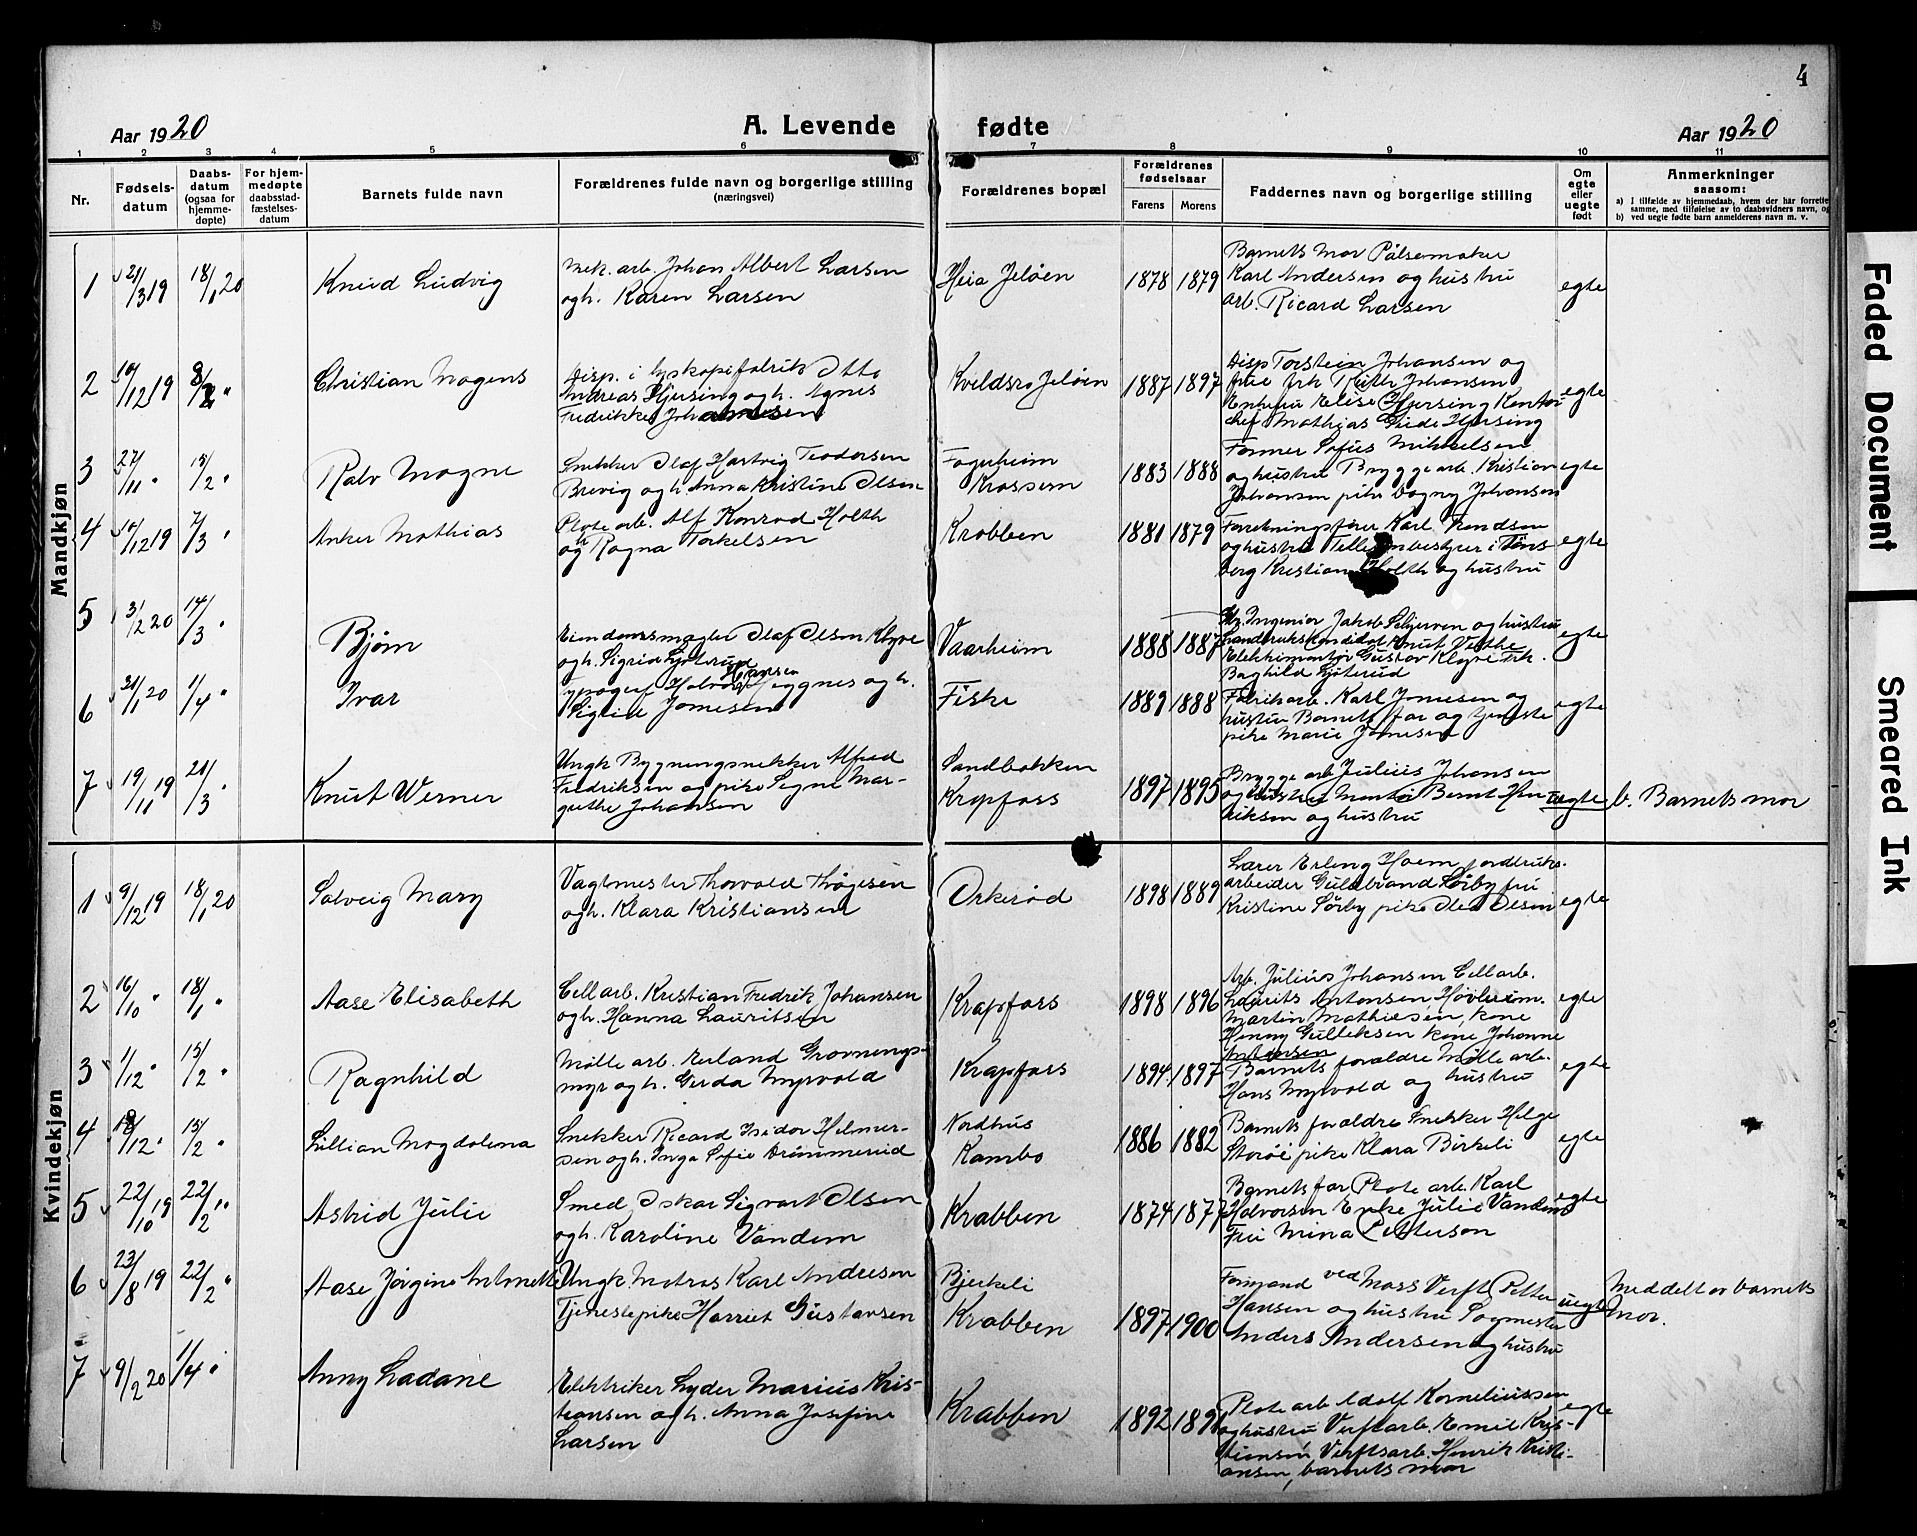 4
Aar 1920
A. Levende fødte
Aar 1920
1 2 3 4 5 6 7 8 9 10 11
Nr.
Fødsels-
datum
Daabs-
datum
(ogsaa for
hjemme-
døpte)
For hjem-
medøpte
daabsstad-
fæstelses-
datum
Barnets fulde navn
Forældrenes fulde navn og borgerlige stilling
(næringsvei)
Forældrenes bopæl
Forældrenes
fødselsaar
Farens Morens
Faddernes navn og borgerlige stilling
Om
egte
eller
uegte
født
Anmerkninger
saasom:
a) I tilfælde av hjemmedaab, hvem der har forrette
samme, med tilføielse av to daabsvidners navn, og
b) ved uegte fødte barn anmelderens navn m. v.
Mandkjøn
1 21/3 19 18/1 20
Knud Ludvig
Mek. arb. Johan Albert Larsen
og h. Karen Larsen
Heia Jeløen
1878 1879
Barnets mor Pølsemaker
Karl Andersen og hustru
arb. Ricard Larsen
egte
2 10/12 19 8/2 "
Christian Mogens
Disp. i lyskopifabrik Otto
Andreas Hjersing og h. Agnes
Fredrikke Johannesen
Jeløen
1887 1897
Disp Torstein Johansen og
frue frk Ruth Johansen
Enkefru Elise Hjersing Kontor
chef Mathias Hjersing
egte
3 27/11 " 15/2 "
Ralv Mogne
Snekker Olaf Hartvig Teodorsen
Brevig og h. Anna Kristine Olsen
Fagerheim
Krossern
1883 1888
Former Sofus Mikkelsen
og hustru Bryggearb. Kristian
Johansen pike Dagny Johansen
egte
4 10/12 19 7/3 "
Anker Mathias
Plate arb. Alf Konrad Holth
og h Ragna Torkelsen
Krabben
1881 1879
Forretningsfører Karl Trondsen
og hustru bestyrer i Tøns-
berg Kristian Holth og hustru
egte
5 31/12 20 14/3 "
Bjørn
Eiendomsmægler Olaf Olsen Klyve
og h. Sigrid Sjøterud
Vaarheim
1888 1887
Ingeniør Jakob og hustru
Knut
Gustav Klyve Frk.
Sjøterud
egte
6 21/1 20 1/4 "
Ivar
Typograf Halvor Hansen Heggnes og h.
Sigrid Jamesen
Fiske
1889 1888
Fabrikarb. Karl Jamesen og
hustru Barnets far og tjeneste
pike Marie Jamesen
egte
7 19/11 19 21/3 "
Knut Werner
Ungk Bygningsnekker Alfred
Fredriksen og pike Signe Mar-
grethe Johansen
Sandbakken
Krapfoss
1897 1895
Brygge arb Julius Johansen
og hustru Montør Bernt Hen
riksen og hustru
uegte
b. Barnets mor
Kvindekjøn
1 9/12 19 18/1 20
Solveig Mary
Vagtmester Thorvald Thøgesen
og h. Klara Kristiansen
Orkerød
1898 1889
Lærer Erling Hoem jordbruks-
arbeider Guldbrand Sørby fru
Kristine Sørby pike Olea Olsen
egte
2 16/10 " 18/1 "
Aase Elisabeth
Cellarb. Kristian Fredrik Johansen
og h. Hanna Lauritsen
Krapfoss
1898 1896
Arb. Julius Johansen Cellarb.
Laurits Antonsen,
Martin Mathiesen, kone
Henny Gulliksen kone Johanne
Antonsen
egte
3 1/12 " 15/2 "
Ragnhild
Mølle arb. Erland Grovnings-
myr og h. Gerda Myrvold
Krapfoss
1894 1897
Barnets foraldre Mølle arb.
Hans Myrvold og hustru
egte
4 18/12 " 15/2 "
Lillian Magdalena
Snekker Ricard Isidor Helmer-
sen og h. Inga Sofie
Nordhus
Kambo
1886 1882
Barnets foraldre Snekker Helge
Storøe pike Klara Birkeli
egte
5 22/10 19 22/2 "
Astrid Julie
Smed Oskar Sigvart Olsen
og h. Karoline Vandem
Krabben
1874 1877
Barnets far Plate arb. Karl
Halvorsen Enke Julie Vandem
Fru Mina Petterson
egte
6 23/8 19 22/2 "
Aase Jørgine Antonette
Ungk. Matros Karl Andresen
Tjenestepike Harriet Gustavsen
Bjerkeli
Krabben
1897 1900
Formand ved Moss Verft Petter
Hansen og hustru Sagmester
Anders Andersen og hustru
uegte
Meddelt av barnets
mor.
7 9/2 20 1/4 "
Anny Ladane
Elektriker Lyder Marius Kris-
tiansen og h. Anna Josefine
Larsen
Krabben
1892 1891
Plate arb Adolf Korneliussen
og hustru Verftarb. Emil Kris-
tiansen, Verftsarb. Henrik Kristi-
ansen, barnets mor
egte
Faded Document
Smeared Ink